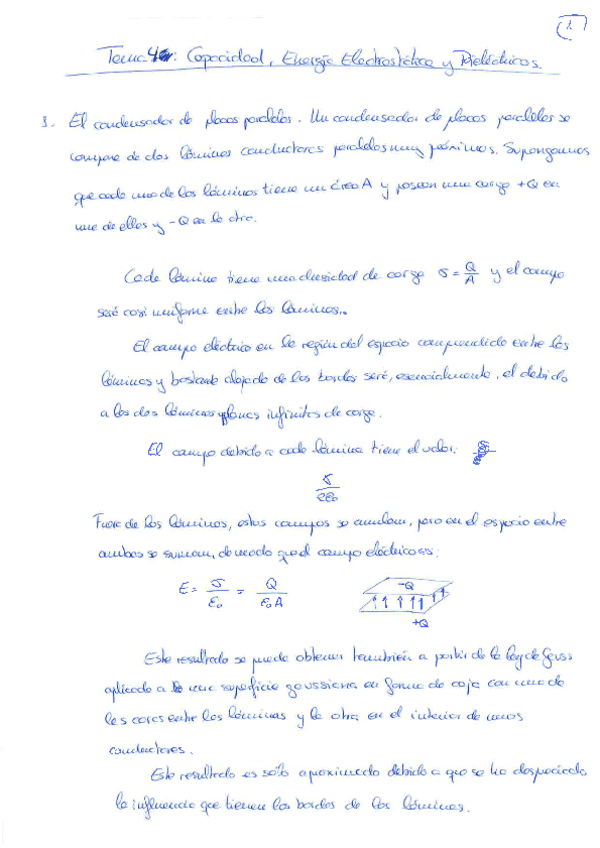 1.
Tema 4: Capacidad, Energía Electrostática y Dieléctricos.
1. El condensador de placas paralelas. Un condensador de placas paralelas se
compone de dos láminas conductoras paralelas muy próximas. Supongamos
que cada una de las láminas tiene un área A y posean una carga +Q en
una de ellas y -Q en la otra.
Cada lámina tiene una densidad de carga σ = Q/A y el campo
será casi uniforme entre las láminas.
El campo eléctrico en la región del espacio comprendido entre las
láminas y bastante alejado de los bordes será, esencialmente, el debido
a las dos láminas planas infinitas de carga.
El campo debido a cada lámina tiene el valor:
σ/2ε₀
Fuera de las láminas, estos campos se anulan, pero en el espacio entre
ambas se suman, de modo que el campo eléctrico es:
E = σ/ε₀ = Q/ε₀A
-Q
+Q
Este resultado se puede obtener también a partir de la ley de Gauss
aplicada a una superficie gaussiana en forma de caja con una de
las caras entre las láminas y la otra en el interior de unos
conductores.
Este resultado es sólo aproximado debido a que se ha despreciado
la influencia que tienen los bordes de las láminas.